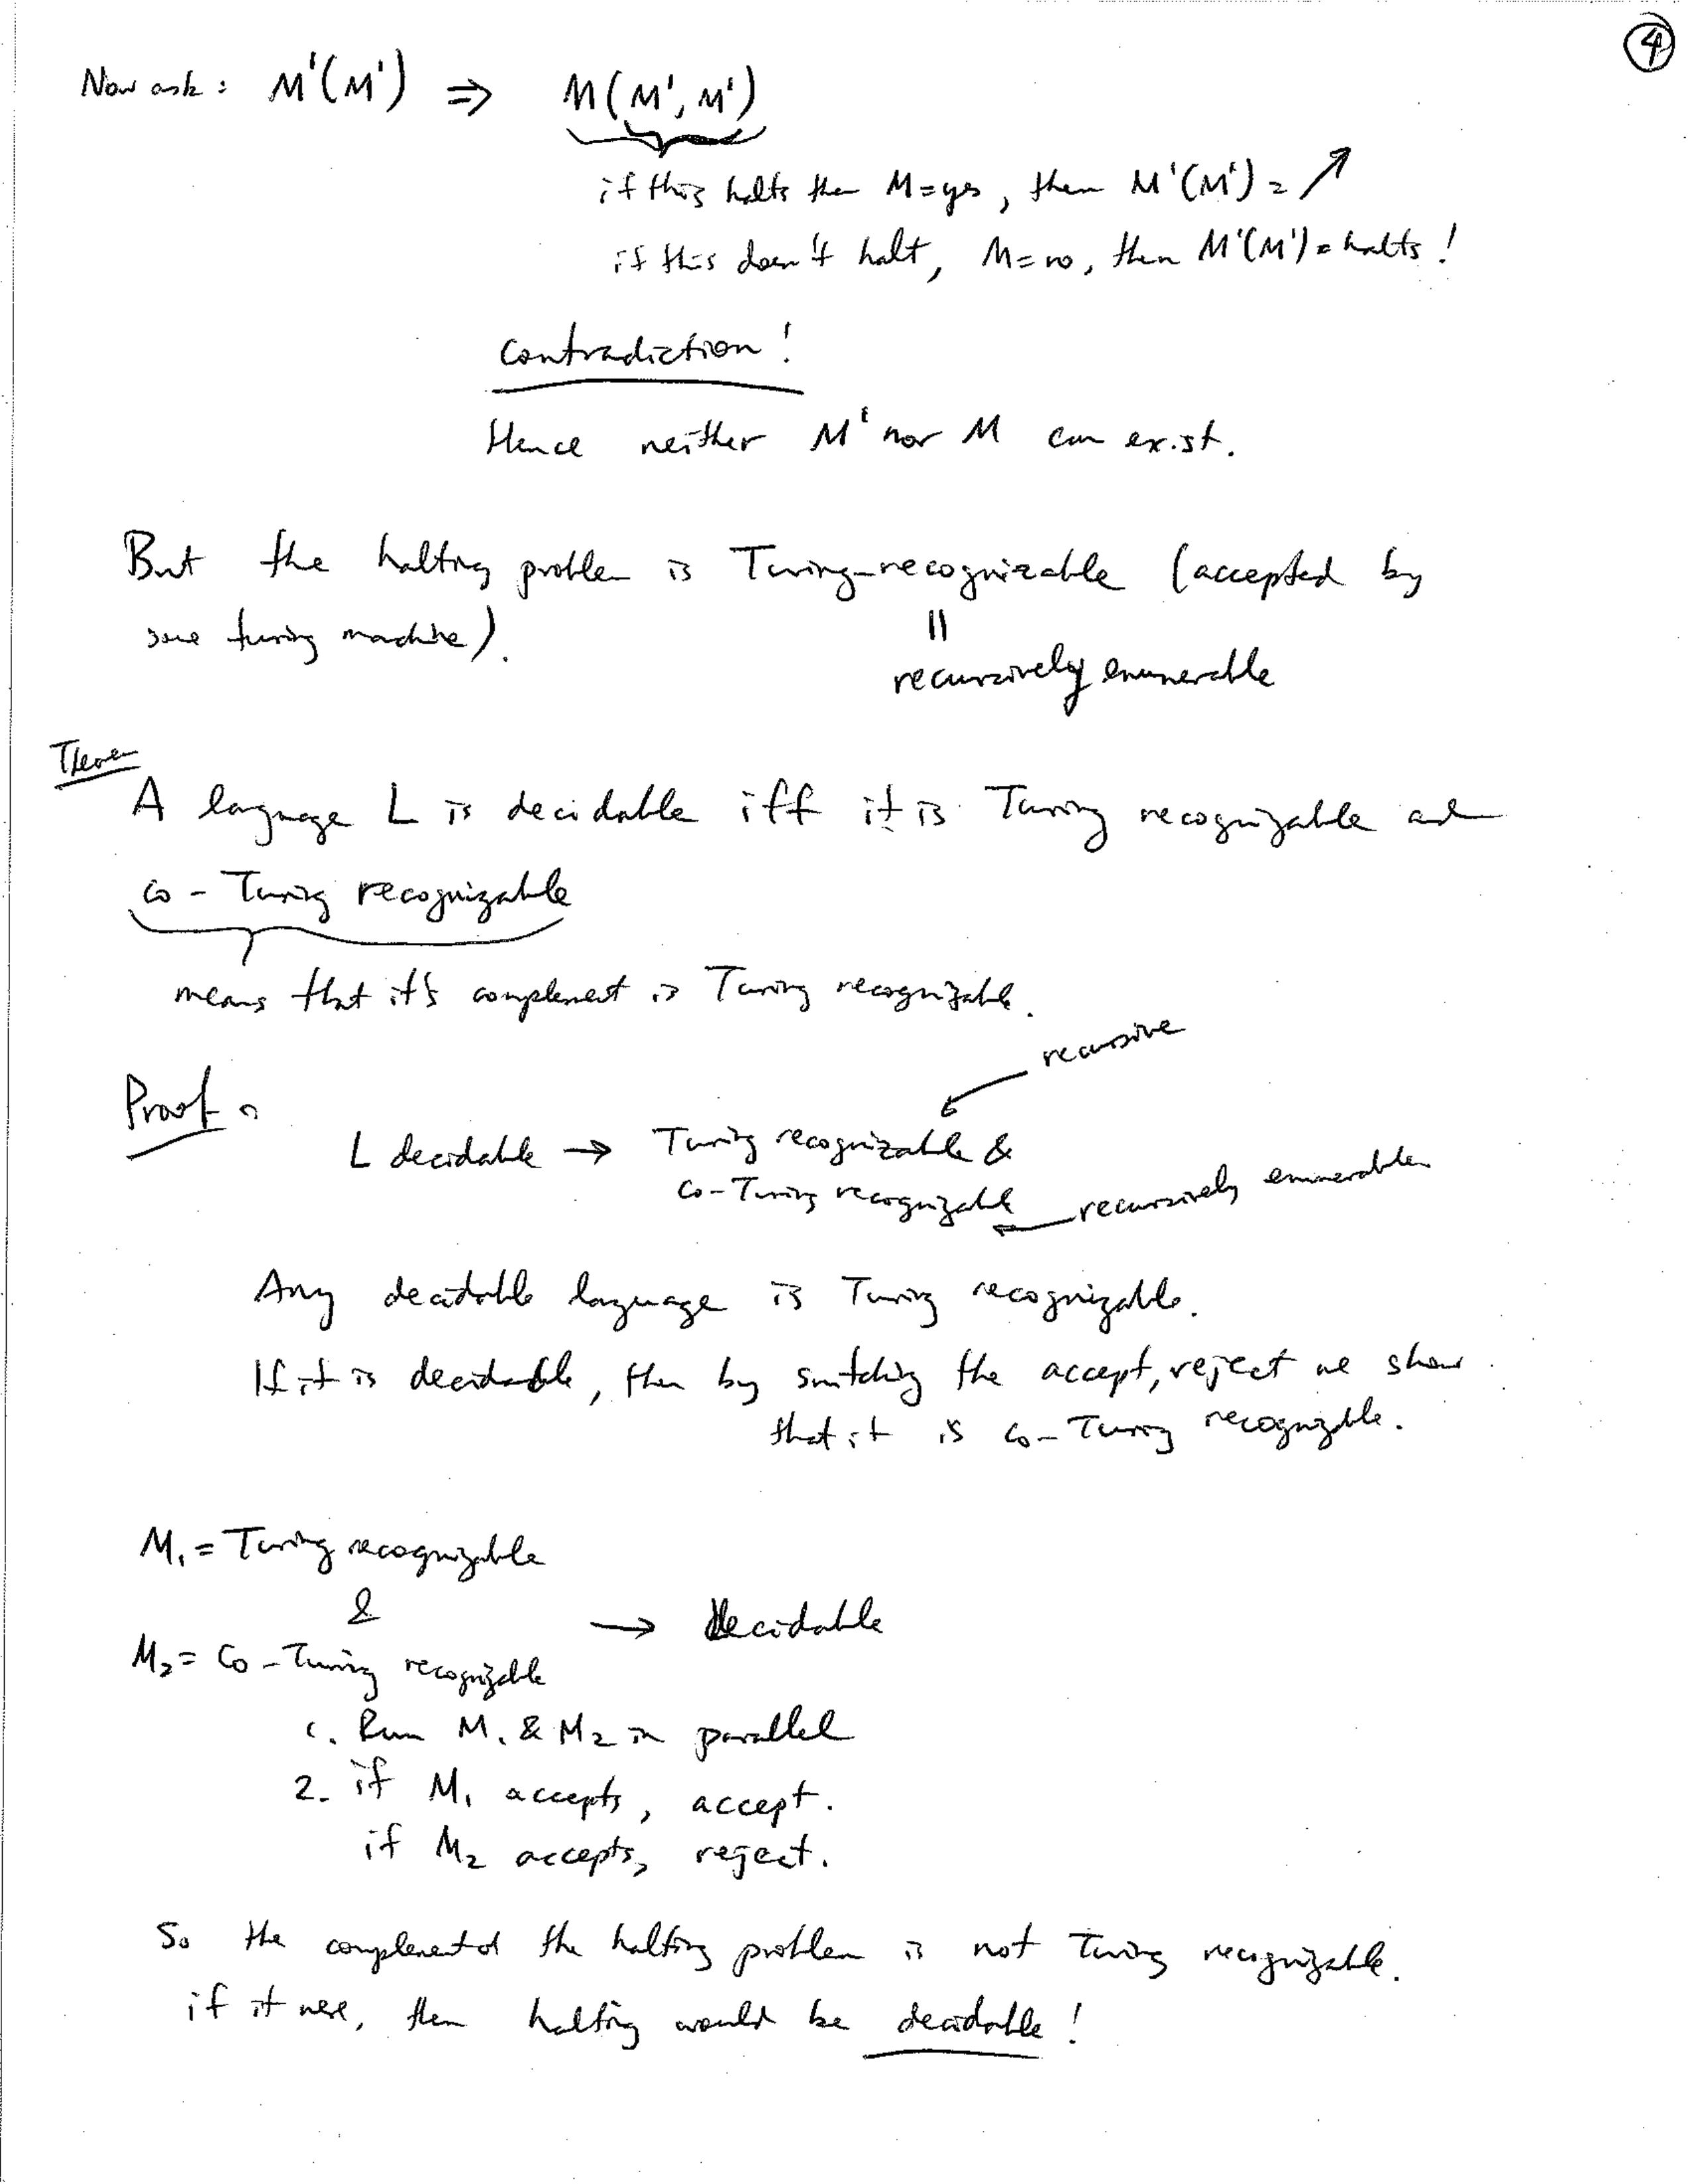 4
Now ask: M'(M') ⇒ M(M', M')
if this halts then M=yes, then M'(M') = ↗
if this doesn't halt, M=no, then M'(M') = halts!
Contradiction!
Hence neither M' nor M can exist.
But the halting problem is Turing-recognizable (accepted by
some turing machine).
||
recursively enumerable
Theorem
A language L is decidable iff it is Turing recognizable and
co-Turing recognizable
means that it's complement is Turing recognizable.
recursive
Proof:
L decidable → Turing recognizable &
co-Turing recognizable ← recursively enumerable
Any decidable language is Turing recognizable.
If it is decidable, then by switching the accept, reject we show
that it is co-Turing recognizable.
M₁ = Turing recognizable
& → decidable
M₂ = Co-Turing recognizable
1. Run M₁ & M₂ in parallel
2. if M₁ accepts, accept.
if M₂ accepts, reject.
So the complement of the halting problem is not Turing recognizable.
if it were, then halting would be decidable!